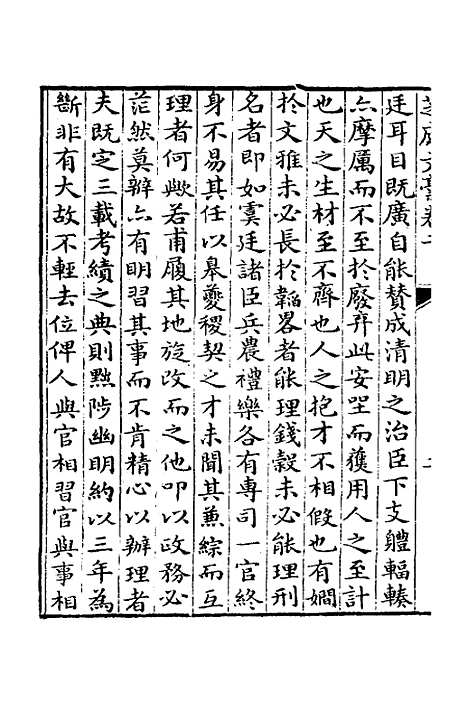 廷耳目既廣自能贊成清明之治臣下支軆輻輳
亦摩厲而不至於廢弃此安坐而獲用人之至計
也天之生材至不齊也人之抱才不相假也有嫺
於文雅未必長於韜畧者能理錢穀未必能理刑
名者即如虞廷諸臣兵農禮樂各有專司一官終
身不易其任以皋夔稷契之才未聞其兼綜而互
理者何歟若甫履其地旋改而之他叩以政務必
茫然莫辦亦有明習其事而不肯精心以辦理者
夫既定三載考績之典則黜陟幽明約以三年為
斷非有大故不輕去位俾人與官相習官與事相